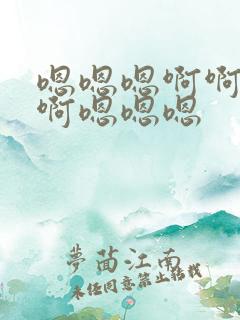 嗯嗯嗯啊啊
啊嗯嗯嗯
夢茴江南
未经同意禁止转载